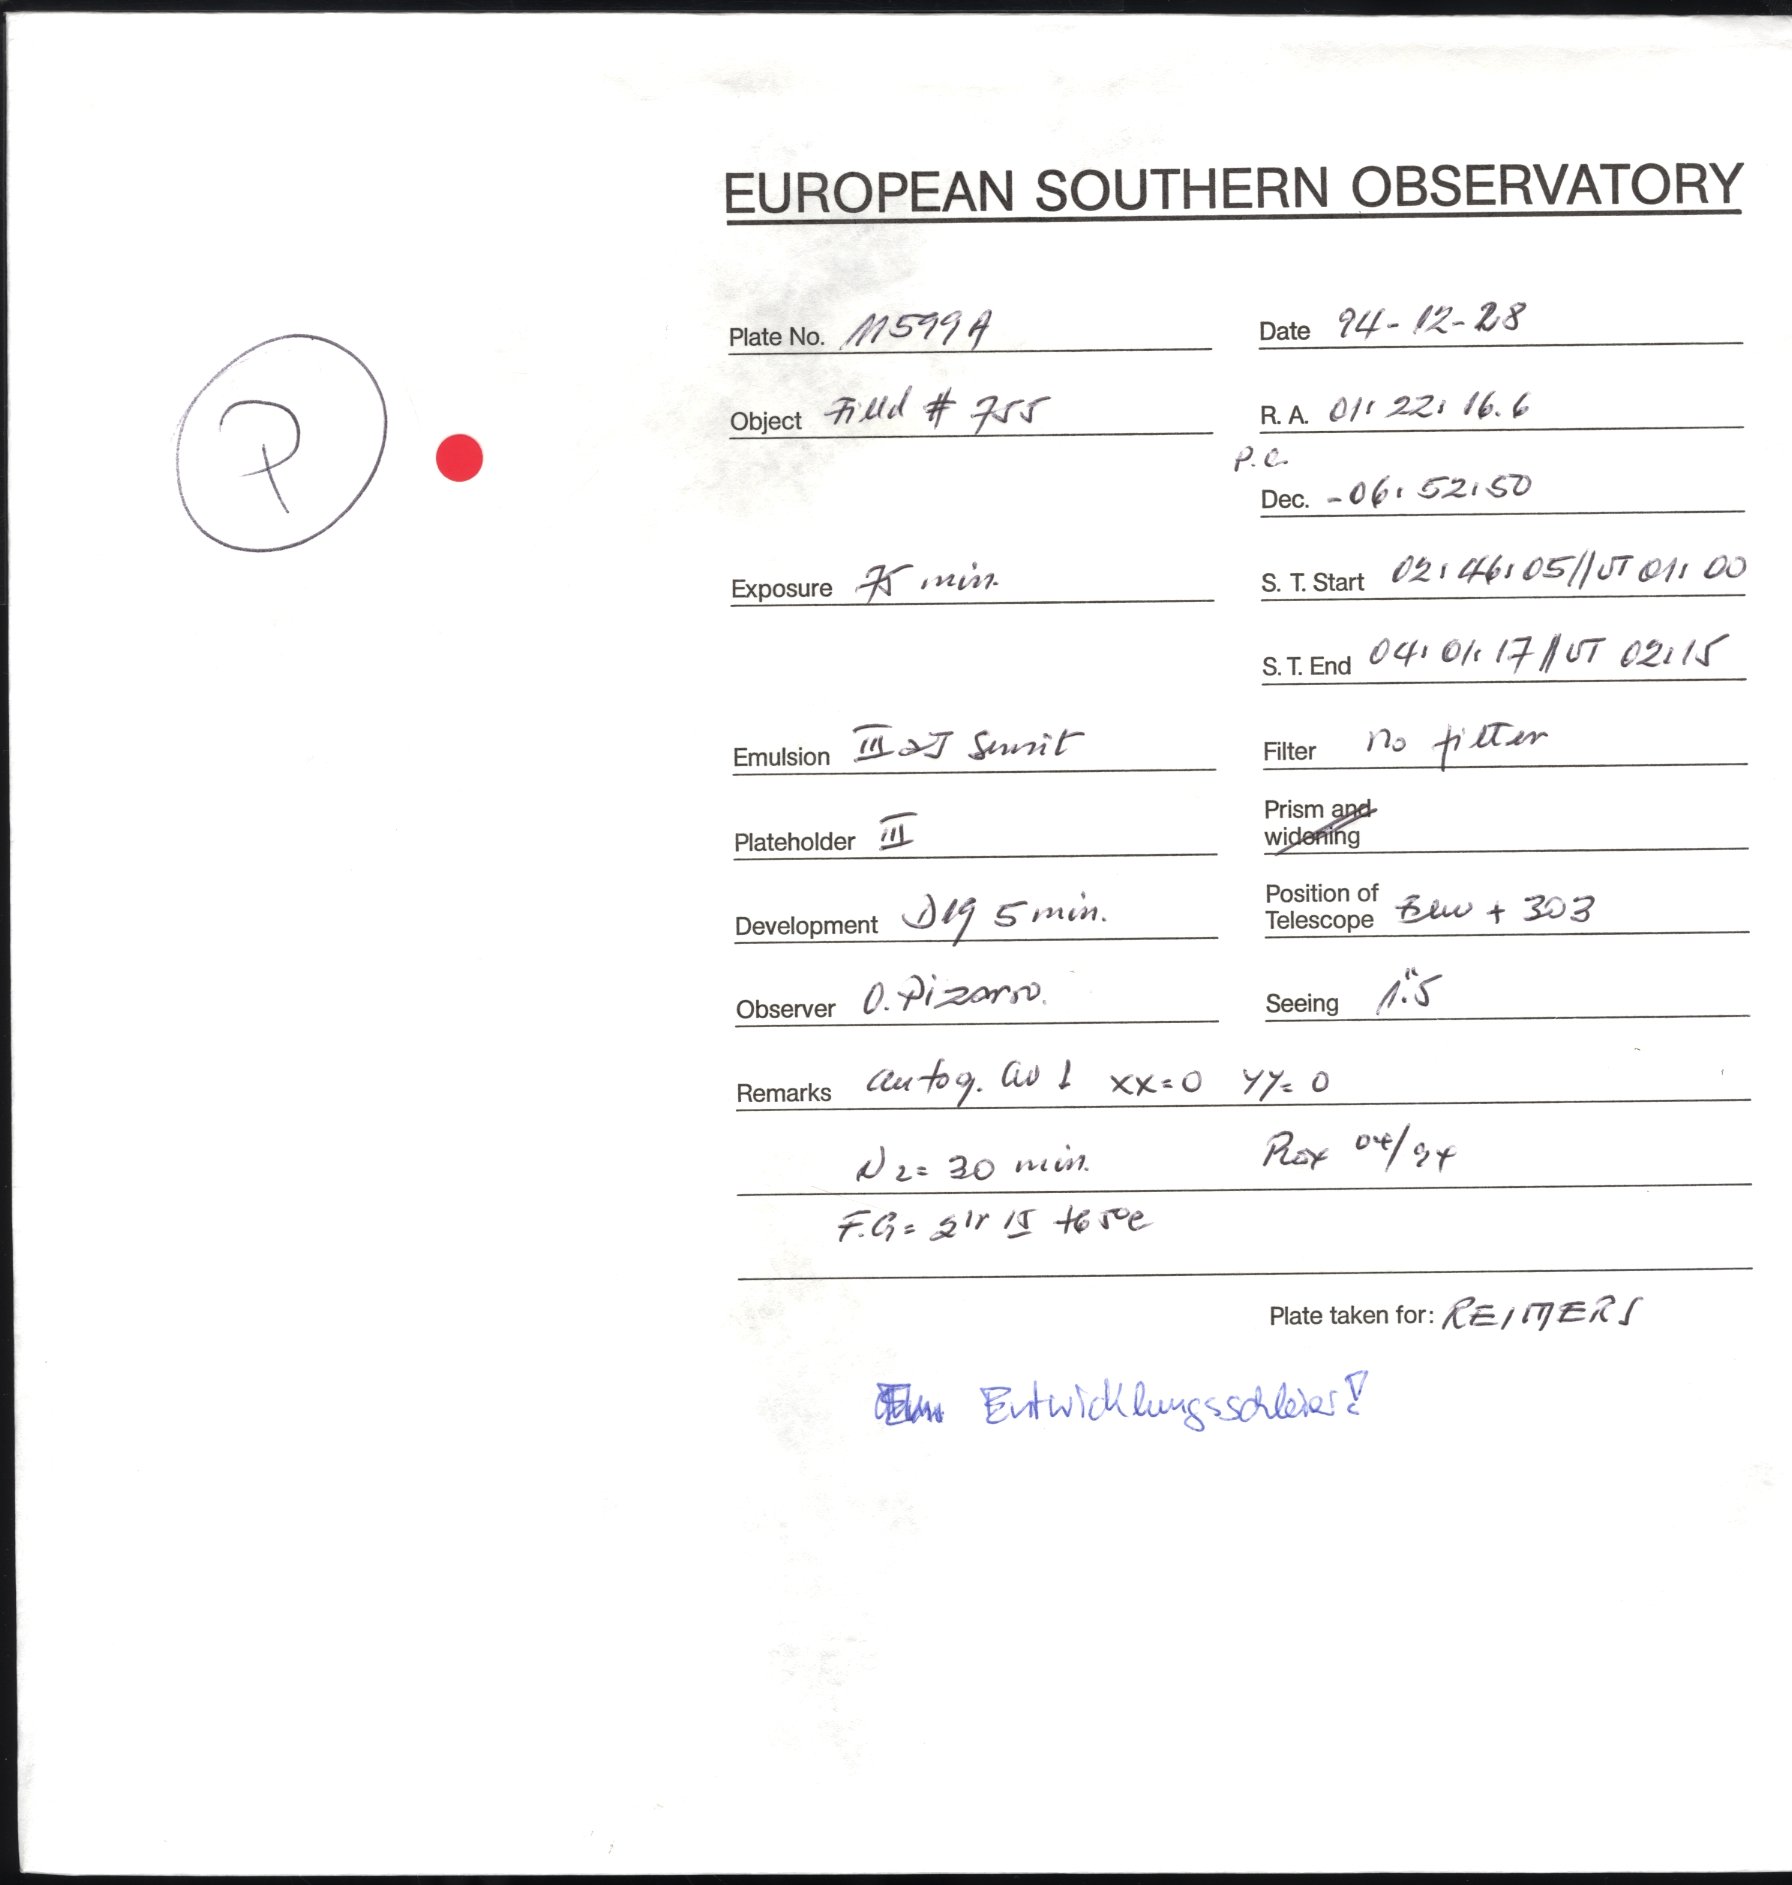 EUROPEAN SOUTHERN OBSERVATORY
Plate No. 11599A Date 94-12-28
Object Field # 755 R. A. 01: 22: 16.6
P. C.
Dec. -06: 52: 50
Exposure 75 min. S. T. Start 02: 46: 05 // UT 01: 00
S. T. End 04: 01: 17 // UT 02:15
Emulsion III aJ Filter no filter
Plateholder III Prism and widening
Development D19 5 min. Position of Telescope + 303
Observer O. Pizarro. Seeing 1".5
Remarks autog. xx=0 yy=0
N2= 30 min. 04/94
F.G=
Plate taken for: REIMERS
Entwicklungsschleier!
P